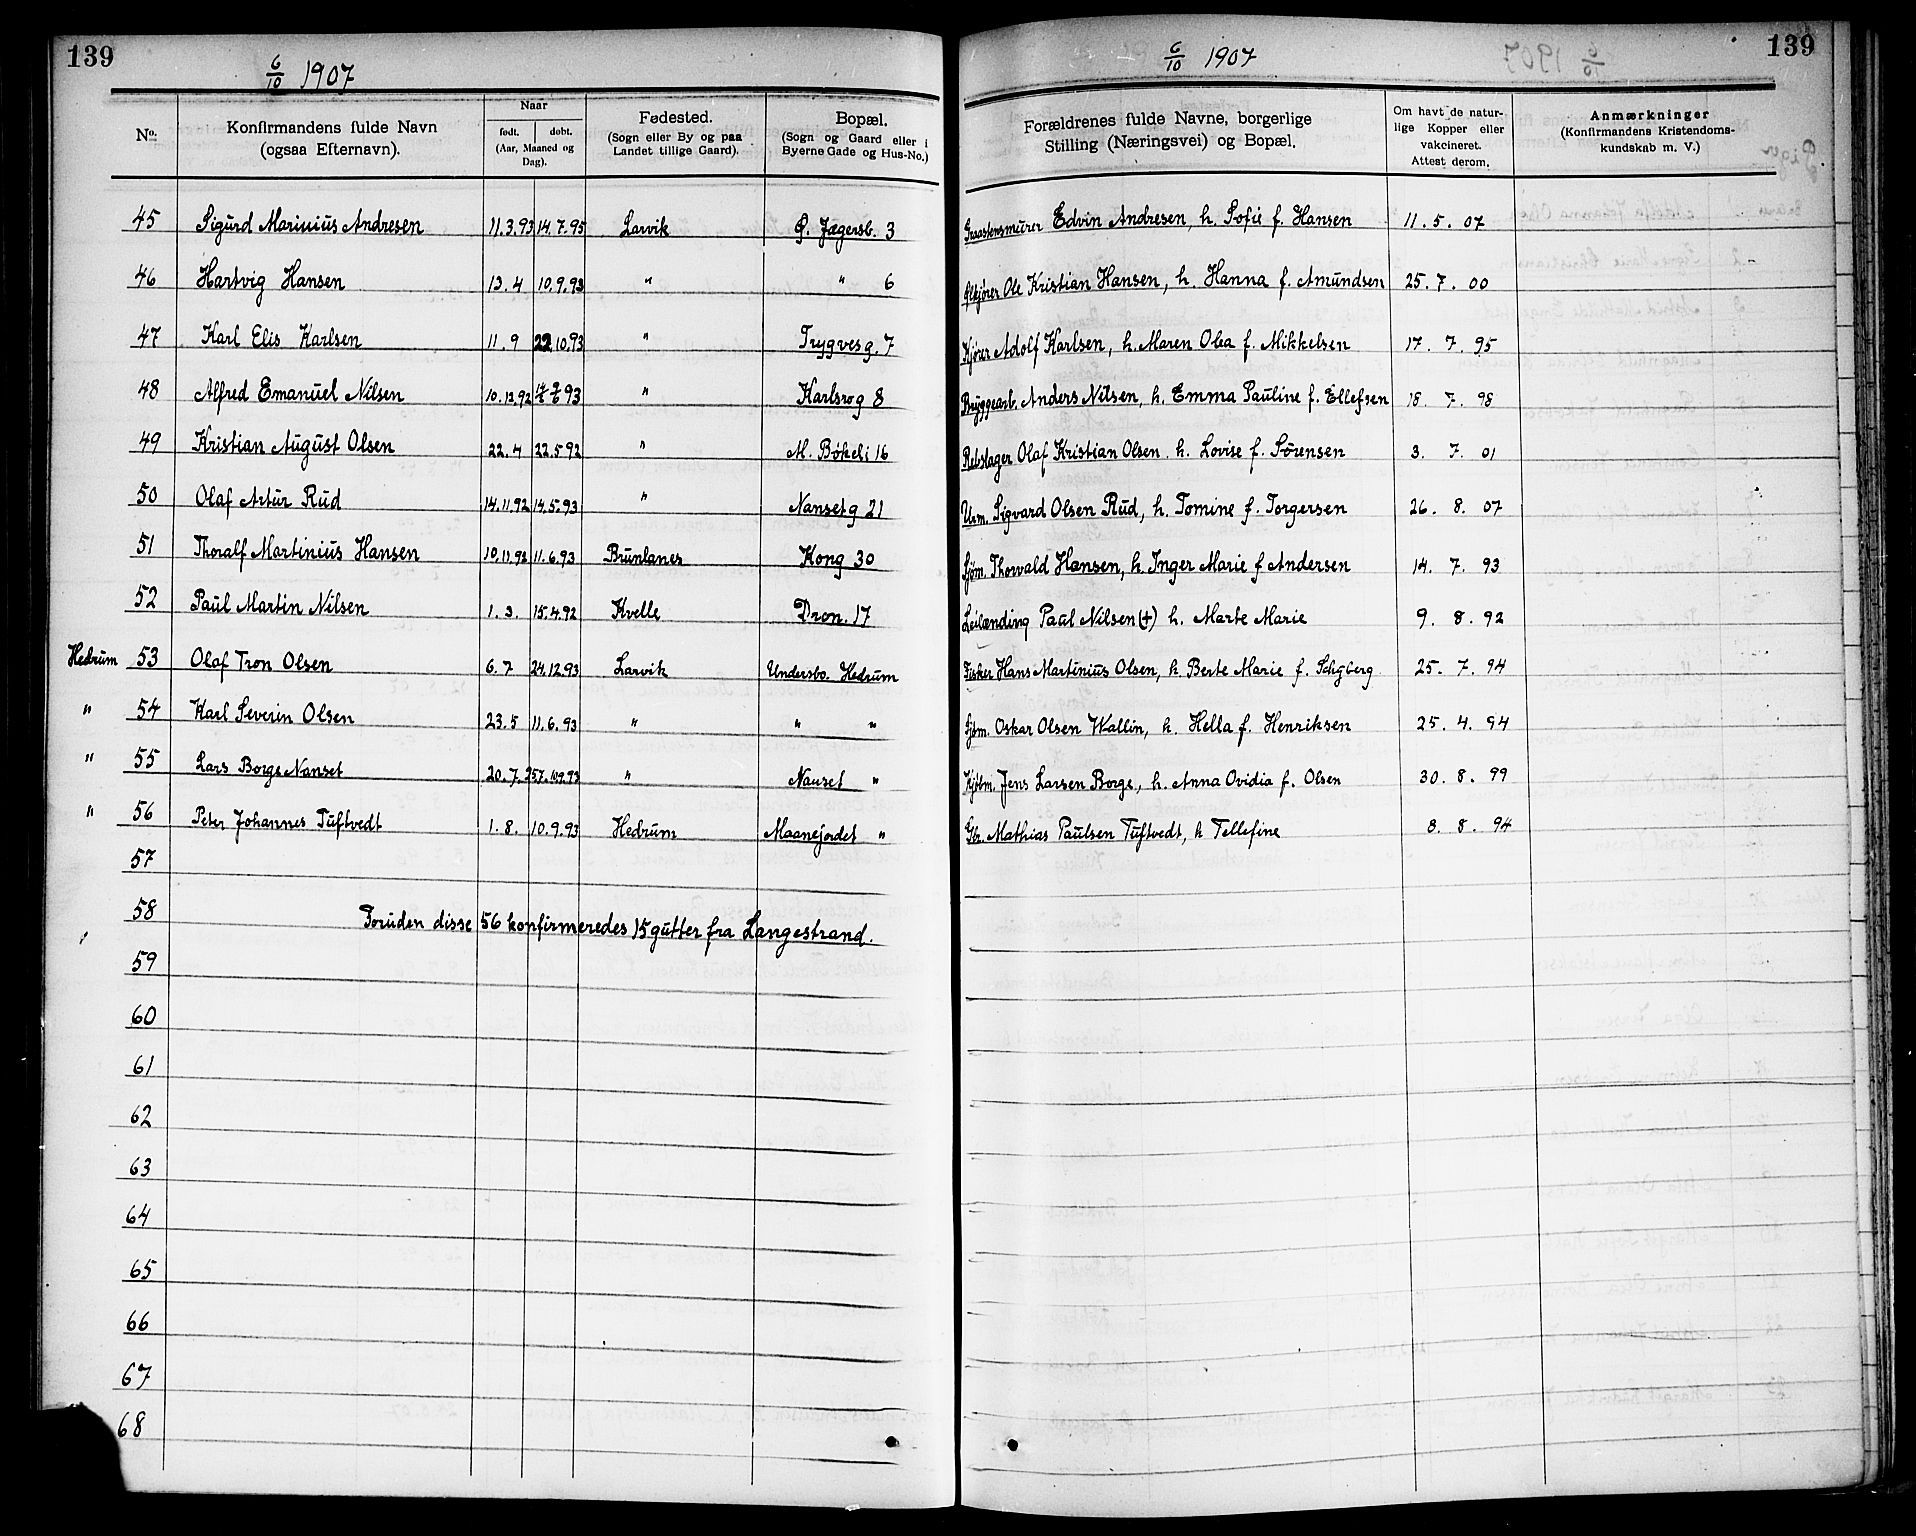 139
6/10 1907
No.
Konfirmandens fulde Navn
(ogsaa Efternavn).
Naar
født.
døbt.
(Aar, Maaned og
Dag).
Fødested.
(Sogn eller By og paa
Landet tillige Gaard).
Bopæl.
(Sogn og Gaard eller i
Byerne Gade og Hus-No.)
45 Sigurd Marinius Andresen 11.3.93 14.7.95 Larvik Ø. Jægersb. 3
46 Hartvig Hansen 13.4 10.9.93 " " 6
47 Karl Elis Karlsen 11.9 22.10.93 " Trygvesg. 7
48 Alfred Emanuel Nilsen 10.12.92 93 " Karlsrog 8
49 Kristian August Olsen 22.4 22.5.92 " M. Bøkeli 16
50 Olaf Artur Rud 14.11.92 14.5.93 " Nansetg 21
51 Thoralf Martinius Hansen 10.11.92 11.6.93 Brunlanes Kong 30
52 Paul Martin Nilsen 1.3. 15.4.92 Kvelle Dron. 17
Hedrum 53 Olaf Tron Olsen 6.7 24.12.93 Larvik Undersbo. Hedrum
" 54 Karl Severin Olsen 23.5 11.6.93 " " "
" 55 Lars Borge Nanset 20.7. " Nanset "
" 56 Peter Johannes Tuftvedt 1.8. 10.9.93 Hedrum Maanejordet "
57
58 Foruden disse 56 konfirmeredes 15 gutter fra Langestrand.
59
60
61
62
63
64
65
66
67
68
139
6/10 1907
Forældrenes fulde Navne, borgerlige
Stilling (Næringsvei) og Bopæl.
Om havt de natur-
lige Kopper eller
vakcineret.
Attest derom.
Anmærkninger
(Konfirmandens Kristendoms-
kundskab m. V.)
Graastensmurer Edvin Andresen, h. Sofie f. Hansen 11. 5. 07
Ølkjører Ole Kristian Hansen, h. Hanna f. Amundsen 25. 7. 00
Kjører Adolf Karlsen, h. Maren Olea f. Mikkelsen 17. 7. 95
Bryggearb. Anders Nilsen, h. Emma Pauline f. Ellefsen 18. 7. 98
Rebslager Olaf Kristian Olsen h. Lovise f. Sørensen 3. 7. 01
Urm. Sigvard Olsen Rud, h. Tomine f. Torgersen 26. 8. 07
Sjøm. Thorvald Hansen, h. Inger Marie f Andersen 14. 7. 93
Leilænding Paul Nilsen (+) h. Marte Marie 9. 8. 92
Fisker Hans Martinius Olsen, h. Berte Marie f. Schyberg 25. 7. 94
Sjøm. Oskar Olsen Wallin, h. Hella f. Henriksen 25. 4. 94
Kjøbm. Jens Larsen Borge, h. Anna Ovidia f. Olsen 30. 8. 99
Gbr. Mathias Paulsen Tuftvedt, h Tellefine 8. 8. 94